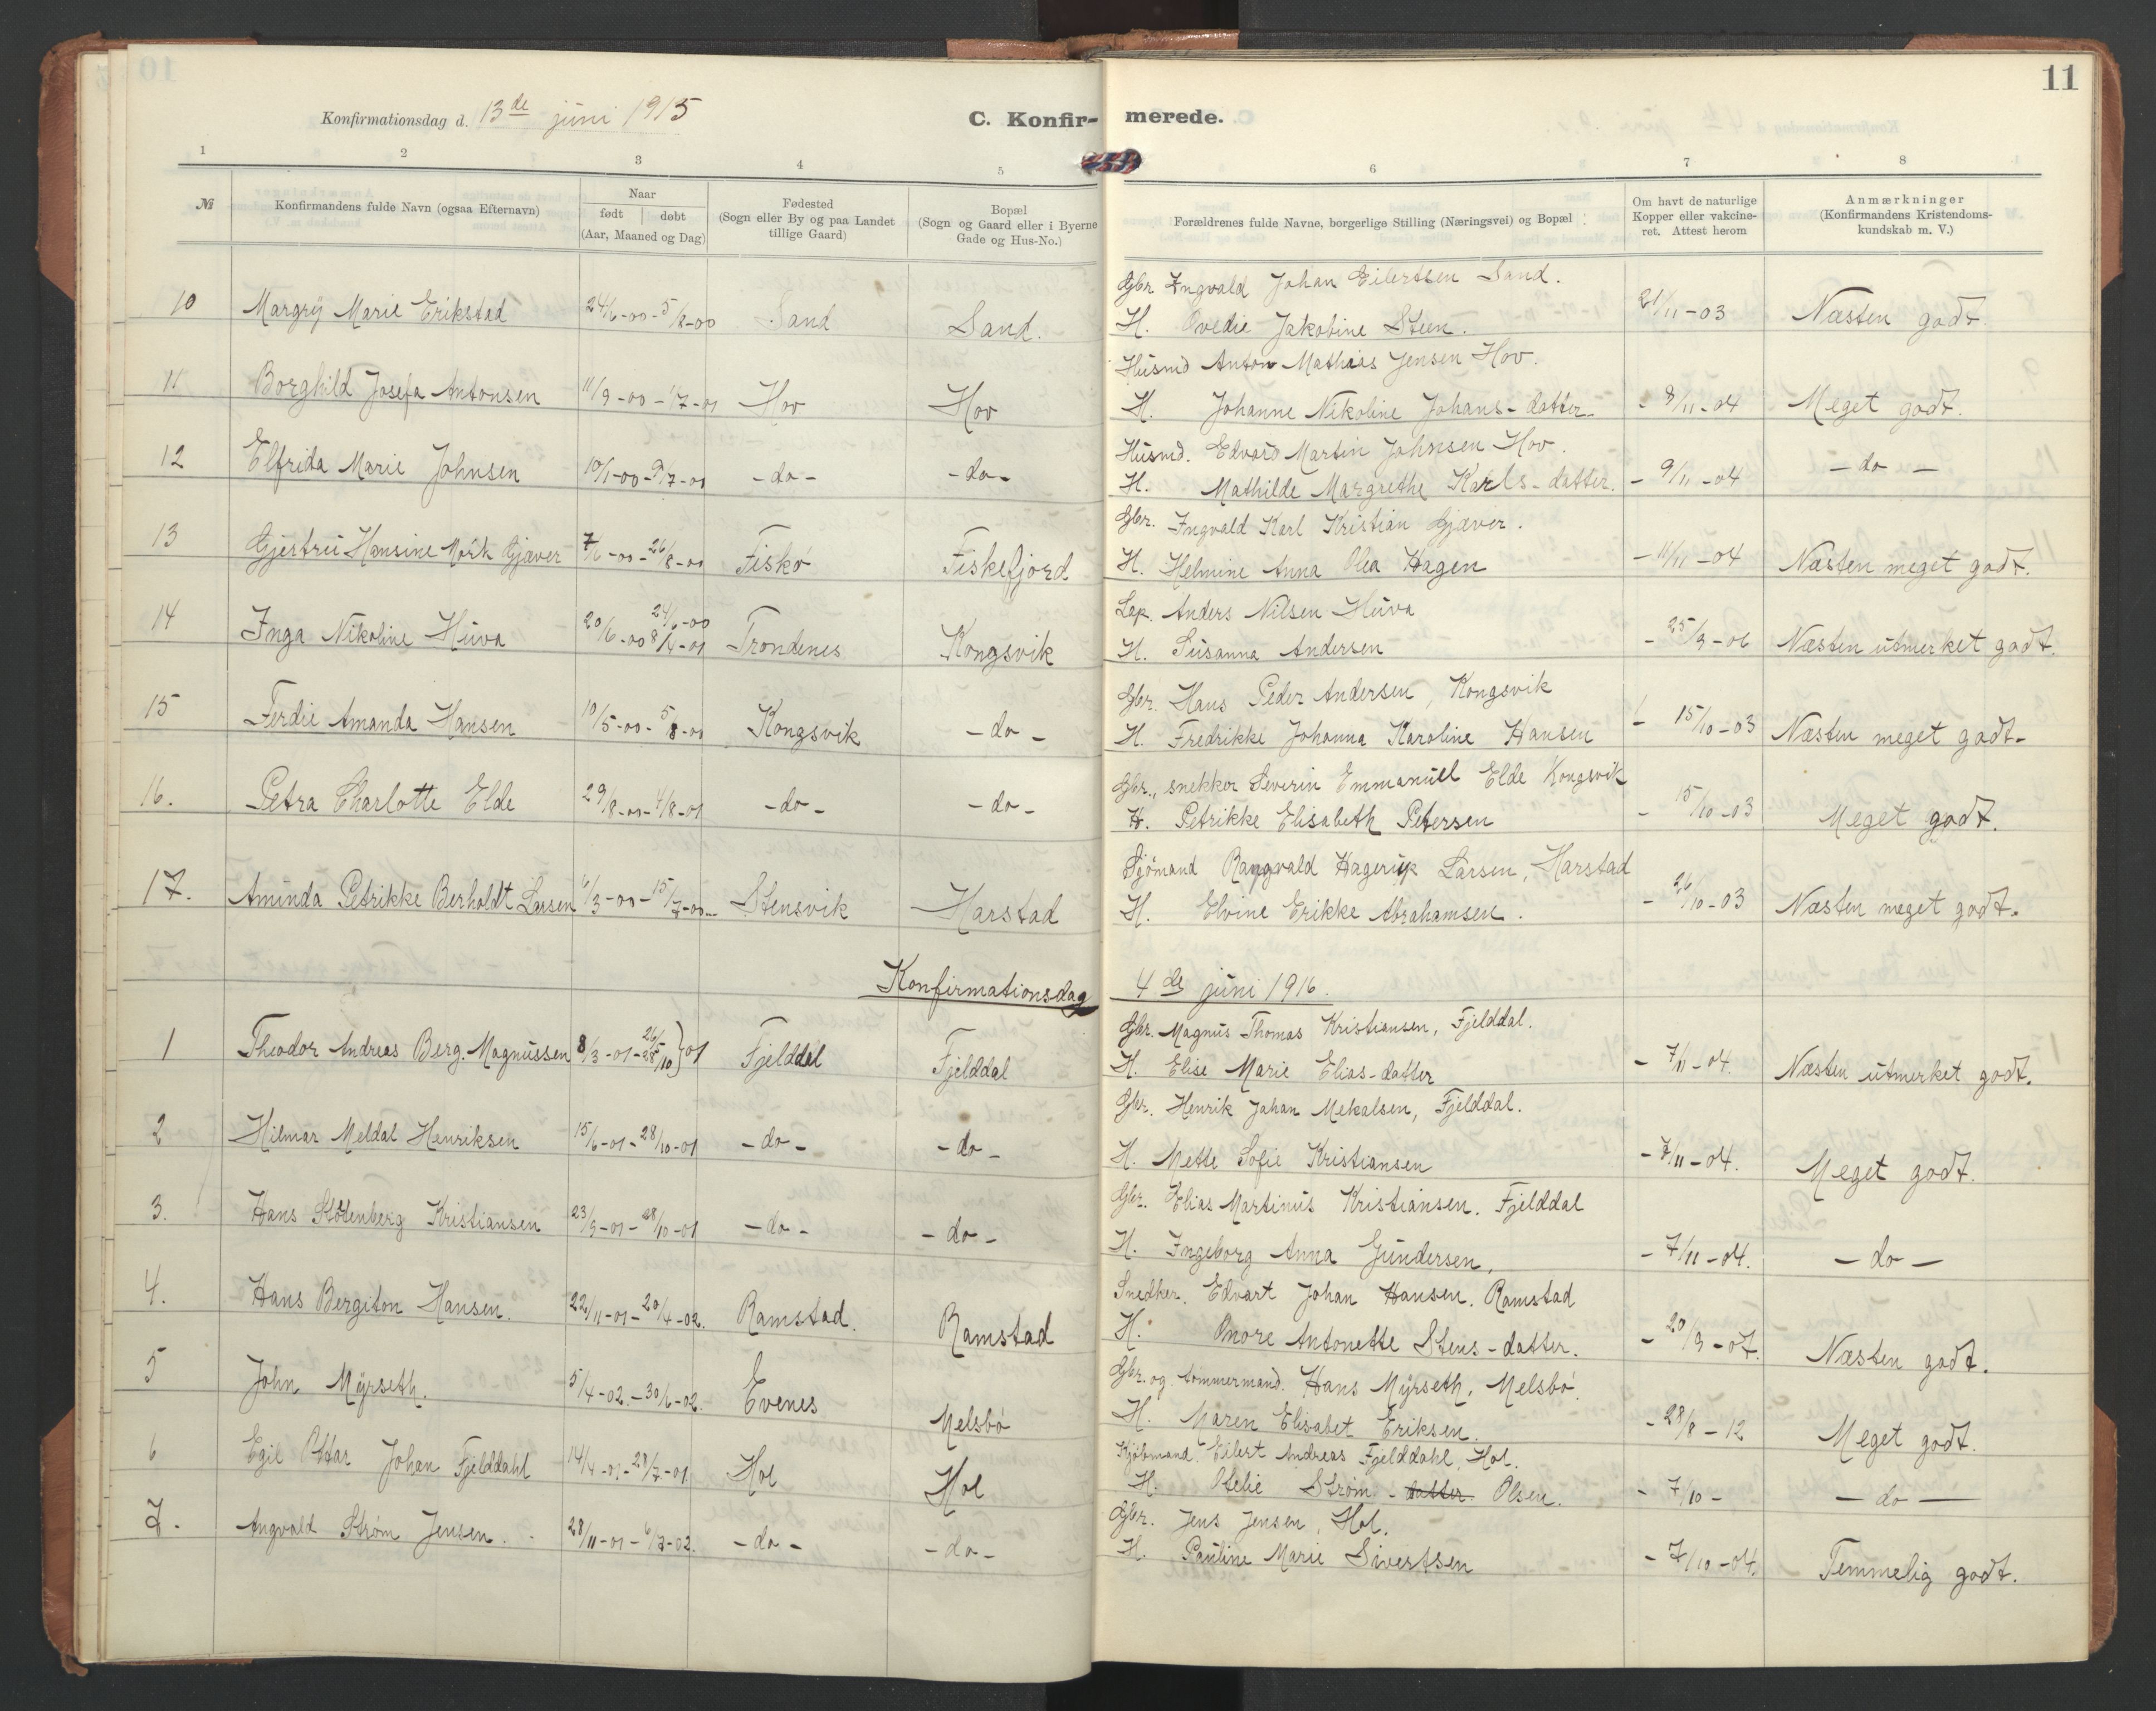 11
Konfirmationsdag d. 13de juni 1915
C. Konfir- merede.
1 2 3 4 5 6 7 8
№ Konfirmandens fulde Navn (ogsaa Efternavn) Naar født døbt (Aar, Maaned og Dag) Fødested (Sogn eller By og paa Landet tillige Gaard) Bopæl (Sogn og Gaard eller i Byerne Gade og Hus-No.) Forældrenes fulde Navne, borgerlige Stilling (Næringsvei) og Bopæl Om havt de naturlige Kopper eller vakcineret. Attest herom Anmærkninger (Konfirmandens Kristendomskundskab m. V.)
Gbr. Ingvald Johan Eilertsen Sand.
10 Margry Marie Erikstad 24/6-00 - 5/8-00 Sand Sand. H. Ovedie Jakobine Steen. 21/11-03 Næsten godt.
Husmd Anton Mathias Jensen Hov.
11 Borghild Josefa Antonsen 11/9-00 - 1/7-01 Hov Hov H. Johanne Nikoline Johans-datter - 8/11-04 Meget godt.
Husmd. Edvard Martin Johnsen Hov.
12 Elfrida Marie Johnsen 10/1-00 - 9/7-00 -do- -do- H. Mathilde Margrethe Karls-datter. - 9/11-04 -do-
Gbr. Ingvald Karl Kristian Gjæver.
13 Gjertru Hansine Mørk Gjæver 7/6-00 - 26/8-00 Fiskø Fiskefjord H. Helmine Anna Olea Hagen - 11/11-04 Næsten meget godt.
Lap. Anders Nilsen Huva
14 Inga Nikoline Huva 20/6-00 24/6-00 8/4-01 Trondenes Kongsvik H. Susanna Andersen - 25/9-06 Næsten utmerket godt.
Gbr. Hans Peder Andersen, Kongsvik
15 Ferdie Amanda Hansen 10/5-00 - 5/8-00 Kongsvik -do- H. Fredrikke Johanna Karoline Hansen - 15/10-03 Næsten meget godt-
Gbr., snekker Severin Emmanuel Elde Kongsvik
16. Petra Charlotte Elde 29/8-00 - 4/8-01 -do- -do- H. Petrikke Elisabeth Petersen - 15/10-03 Meget godt.
Sjömand Rangvald Hagerup Larsen, Harstad
17. Aminda Petrikke Berholdt Larsen 6/3-00 - 15/7-00 Stensvik Harstad H. Elvine Erikke Abrahamsen. - 26/10-03 Næsten meget godt.
Konfirmationsdag 4de juni 1916.
Gbr. Magnus Thomas Kristiansen, Fjelddal.
1 Theodor Andreas Berg. Magnussen 8/3-01 - 26/5 28/10}01 Fjelddal Fjelddal H. Elise Marie Elias-datter - 7/11-04. Næsten utmerket godt.
Gbr. Henrik Johan Mekalsen, Fjelddal.
2 Hilmar Meldal Henriksen 15/6-01 - 28/10-01 -do- -do- H. Mette Sofie Kristiansen - 7/11-04. Meget godt.
Gbr. Elias Martinus Kristiansen. Fjelddal
3. Hans Stoltenberg Kristiansen 23/9-01 - 28/10-01 -do- -do- H. Ingeborg Anna Gundersen. - 7/11-04. -do-
Snedker. Edvart Johan Hansen. Ramstad
4. Hans Bergiton Hansen. 22/11-01 - 20/4-02. Ramstad. Ramstad H. Onore Antonette Stens-datter. - 20/9-07. Næsten godt.
Gbr. og tømmermand. Hans Myrseth, Melsbö.
5 John Myrseth. 5/4-02. - 30/6-02. Evenes Melsbö H. Maren Elisabet Eriksen. - 28/8-12 Meget godt.
Kjöbmand. Eilert Andreas Fjelddahl, Hol.
6 Egil Ottar Johan Fjelddahl 14/4-01 - 28/7-01 Hol Hol H. Otelie Strøm - datter Olsen. - 7/10- -do-
Gbr. Jens Jensen, Hol.
7. Angvald Strøm Jensen. 28/11-01 - 6/7-02. -do- -do- H. Pauline Marie Sivertsen - 7/10-04. Temmelig godt.